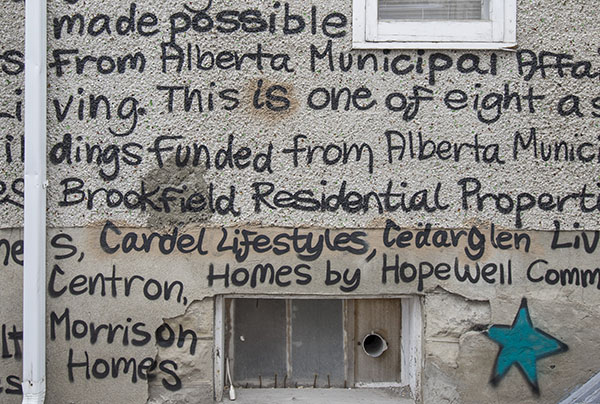 made possible
s From Alberta Municipal Affai
Living. This is one of eight as
ildings Funded from Alberta Munici
s Brookfield Residential Properti
es, Cardel Lifestyles, Cedarglen Liv
Centron, Homes by Hopewell Comm
lt Morrison
es Homes